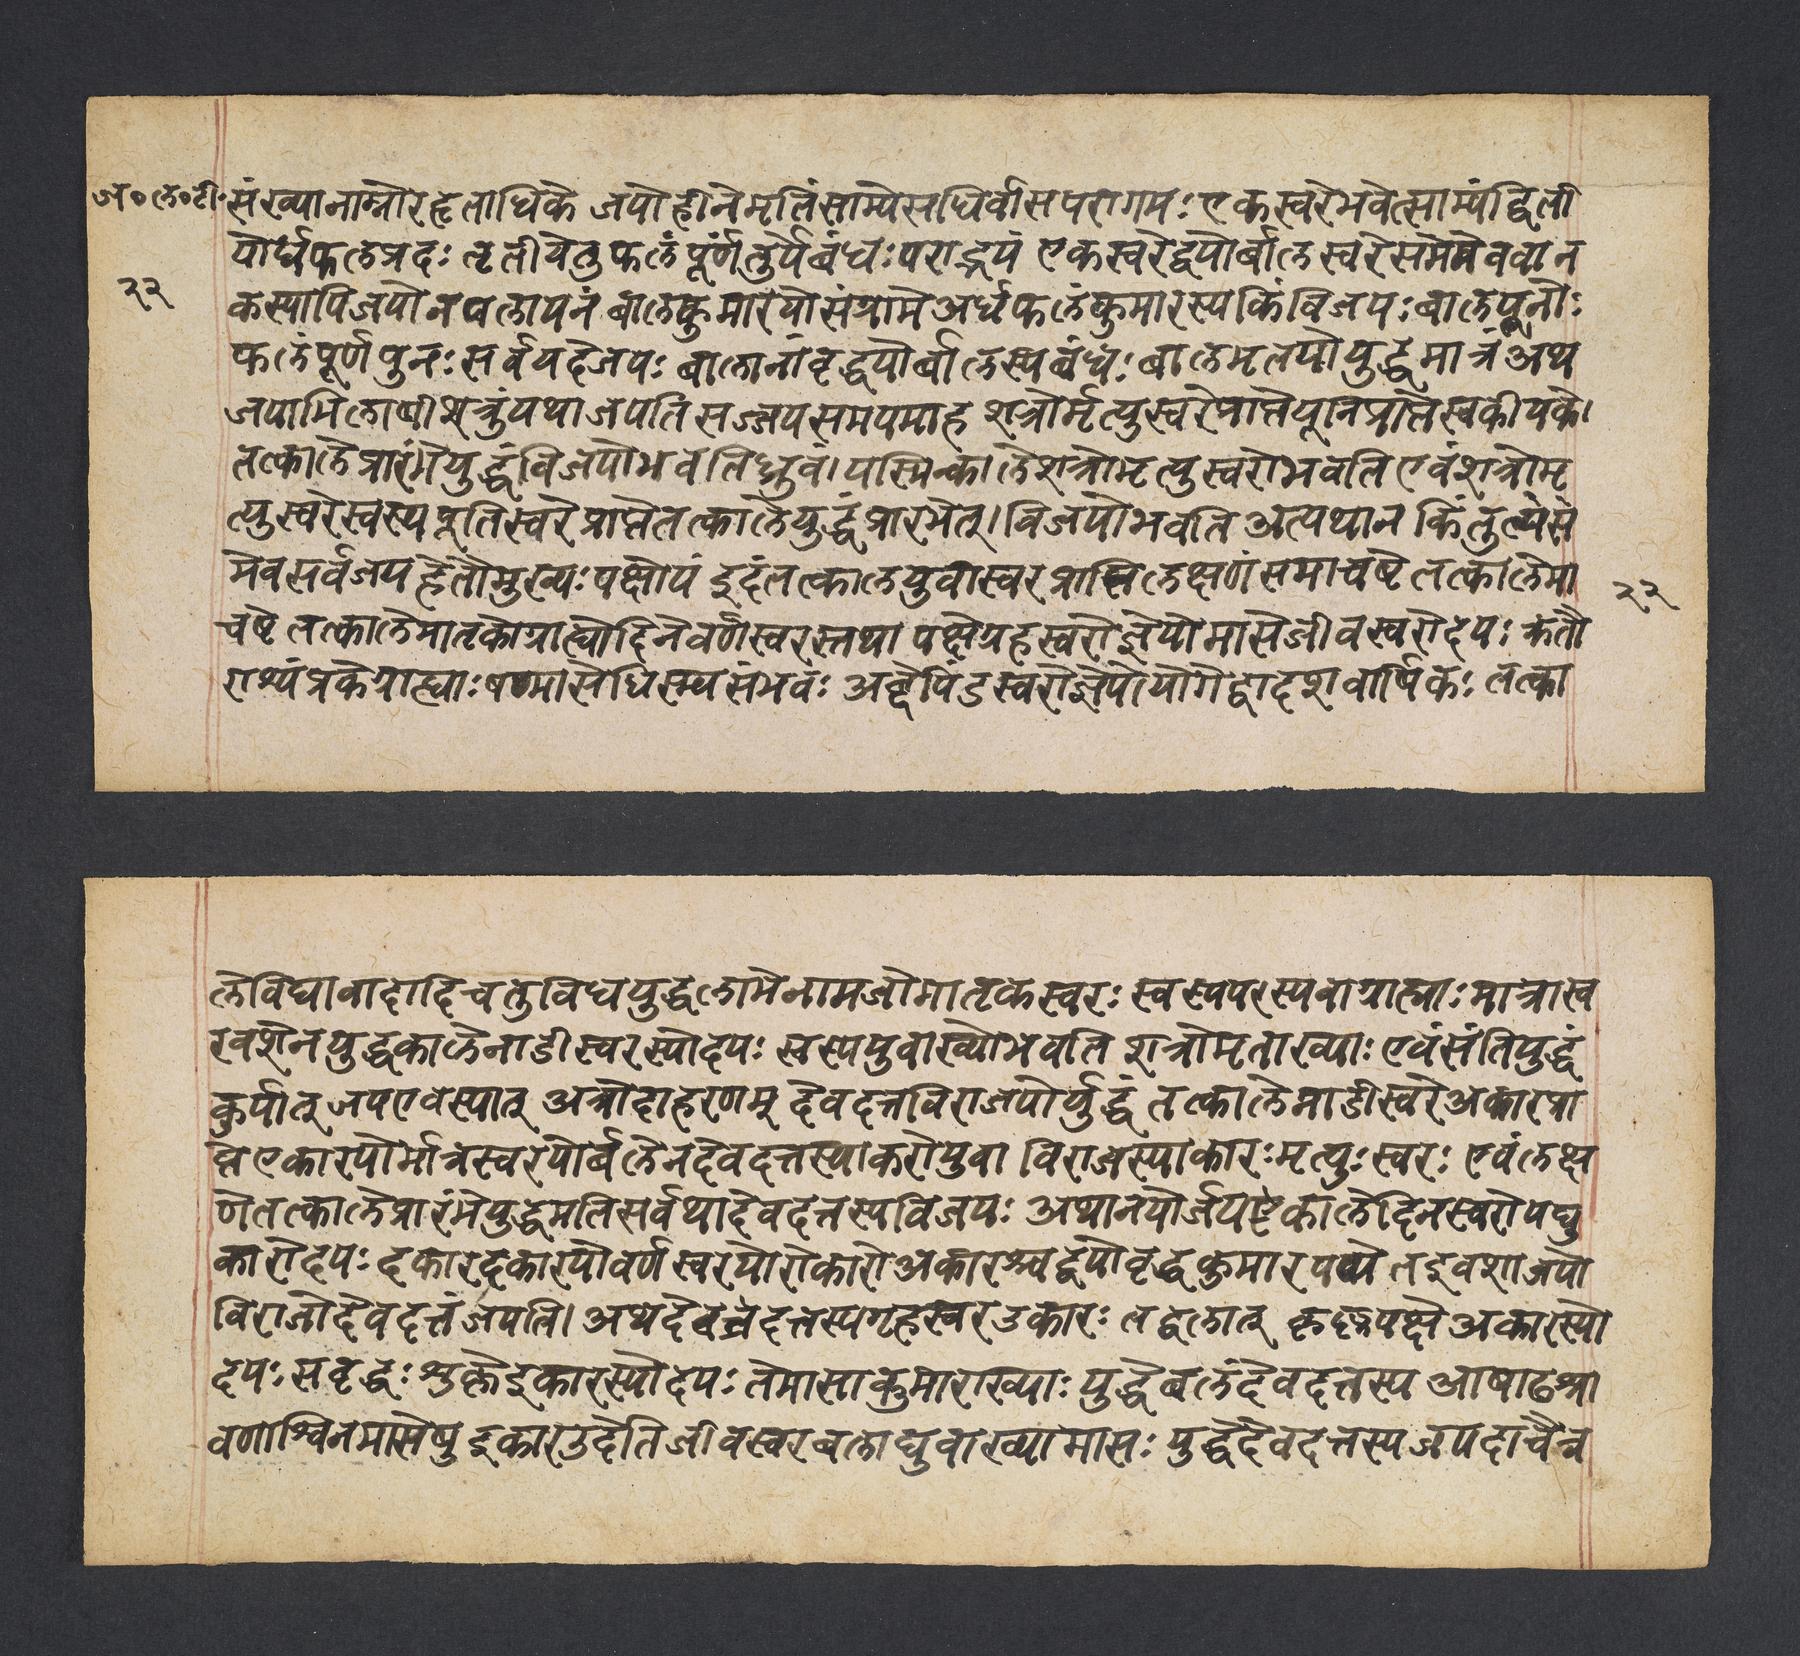 ज॰ल॰टी॰ संख्यानाम्नोरहृताधिके जयोहीनेमृतिंसाम्येसधिर्वासपरागमः एकस्वरेभवेत्साम्यंद्विती
२२
योर्धफलप्रदः तृतीयेतुफलंपूर्णतुर्यैबंधः पराङ्मयं एकस्वरेद्वयोर्बालस्वरेसममेववा न
कस्यापिजयोनपलायनं बालकुमारयोसंग्रामे अर्धफलंकुमारस्यकिंविजयः बालेयूनोः
फलंपूर्णपुनः सर्वयदजयः बालोनांवृद्धयोर्बालस्यबंधः बालमृतयोयुद्धमात्रं अथ
जयाभिलाषीशत्रुंयथाजयतिसज्जयसमयमाह शत्रोर्मृत्युस्वरेप्राप्तेयूनप्राप्तेस्वकीयके।
तत्कालेप्रारंभेयुद्धंविजयोभवतिध्रुवं। यस्मिन्कालेशत्रोमृत्युस्वरोभवति एवंशत्रोमृ
त्युस्वरेस्वस्ययूतिस्वरेप्राप्तेतत्कालेयुद्धंप्रारभेत्। विजयोभवति अत्यथान किंतुल्यंसं
मेवसर्वजयहेतौमुख्यः पक्षोयं इदंतत्कालेयुवास्वरप्राप्तिलक्षणं समाचष्टे तत्कालेमा
२२
चष्टे तत्कालेमातृकाग्राह्यादिनेवर्णस्वरस्तथा पक्षेग्रहस्वरोज्ञेयोमासेजीवस्वरोदयः ऋतौ
राश्यंत्रकेग्राह्याः षण्मासेधिस्म्यसंभवः अब्देपिंडस्वरोज्ञेयोयोगेद्वादशवार्षिकः तत्का
लेविधावादादिचतुविधयुद्धलोभेनामजोमातृकस्वरः स्वस्यपरस्यवाग्राह्याः मात्रास्व
रवशेनयुद्धकालेनाडीस्वरस्योदयः स्वस्ययुवाख्योभवति शत्रोमृताख्याः एवंसंतियुद्धं
कुर्यात् जयएवस्यात् अत्रोदाहरणम् देवदत्तविराजयोर्युद्धं तत्कालेनाडीस्वरेअकारप्रा
प्तएकारयोर्मात्रस्वरयोर्बलेनदेवदत्तस्याकरोयुवा विराजस्याकारः मृत्युः स्वरः एवंलक्ष
णेतत्कालेप्रारंभेयुद्धमतिसर्वथादेवदत्तस्यविजयः अथानयोर्जयएकालेदिनस्वरोयद्यु
कारोदयः दकारदकारयोवर्णस्वरयोरोकारो अकारश्चद्वयोवृद्धकुमारयप्पे तद्वशाजयो
विराजोदेवदत्तंजयति। अथदेवदत्तस्यगृहस्वरउकारः तद्वलोत् कृष्णपक्षे अकारस्यो
दयः सवृद्धः शुक्लेइकारस्योदयः तेमासाकुमाराख्याः युद्धेबलंदेवदत्तस्य आषाढश्रा
वणाश्विनमासेषु इकारउदेतिजीवस्वरबलाद्युवाख्यामासः युद्धेदेवदत्तस्यजयदाचैत्र